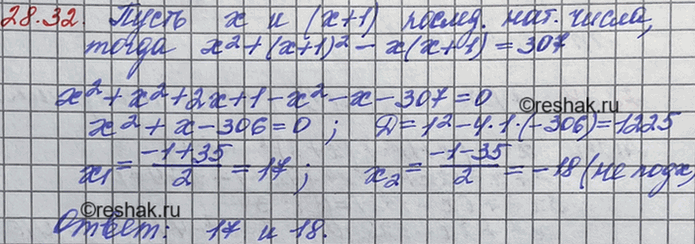 28.32. Пусть x и (x+1) послед. нат. числа,
тогда x²+(x+1)²-x(x+1)=307
x²+x²+2x+1-x²-x-307=0
x²+x-306=0; D=1²-4.1.(-306)=1225
©reshak.ru
x₁=\frac{-1+35}{2}=17; x₂=\frac{-1-35}{2}=-18 (не подх)
©reshak.ru
Ответ: 17 и 18.